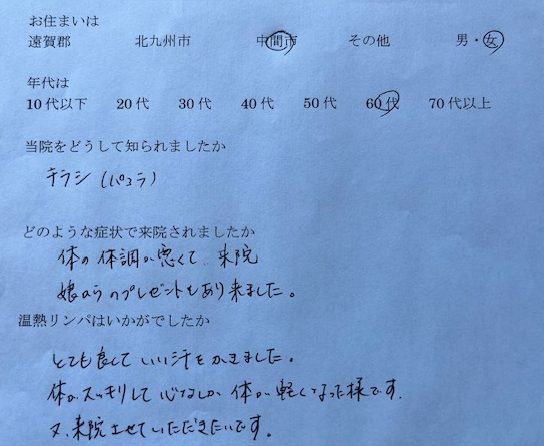 お住まいは
遠賀郡 北九州市 中間市 その他 男・女
年代は
10代以下 20代 30代 40代 50代 60代 70代以上
当院をどうして知られましたか
チラシ(パコラ)
どのような症状で来院されましたか
体の体調が悪くて来院
娘からのプレゼントもあり来ました。
温熱リンパはいかがでしたか
とても良くていい汗をかきました。
体がスッキリして心なしか体が軽くなった様です。
又、来院させていただきたいです。